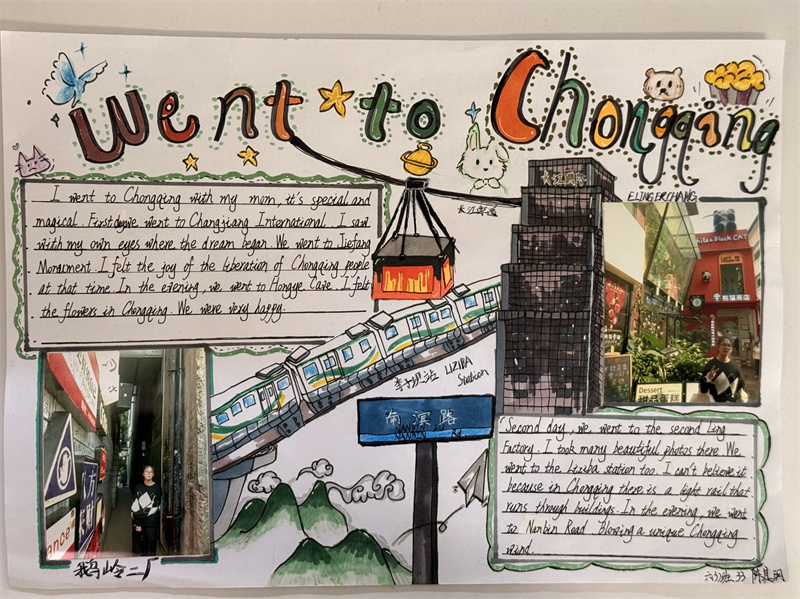 Went to Chongqing
I went to Chongqing with my mom, it's special and
magical. First day we went to Changjiang International. I saw
with my own eyes where the dream began. We went to Jiefang
Monument. I felt the joy of the liberation of Chongqing people
at that time. In the evening, we went to Hongye Cave. I felt
the flowers in Chongqing. We were very happy.
长江索道
ELINGERCHANG
White & Black CAT
李子坝站 LIZIBA
Station
南滨路
NANBIN
Dessert
甜品蛋糕
Second day we went to the second Ling
Factory. I took many beautiful photos there. We
went to the Liziba station too. I can't believe it
because in Chongqing there is a light rail that
runs through buildings. In the evening, we went
to Nanbin Road. Blowing a unique Chongqing
wind.
鹅岭二厂